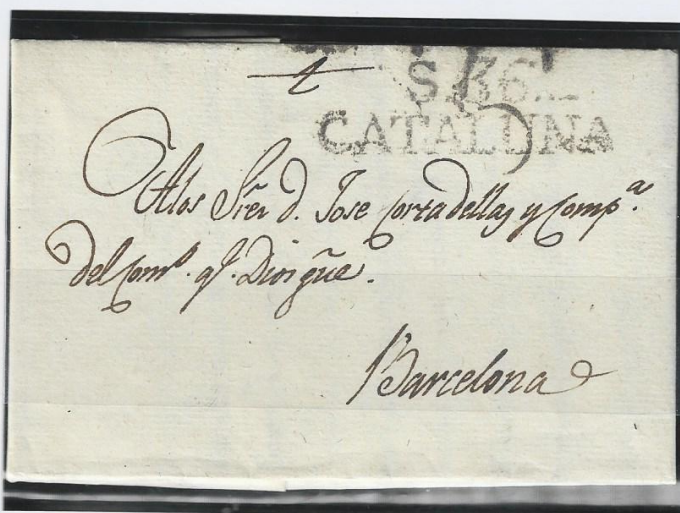 S. 36.
CATALUÑA
A los Sres d. Jose Cortadellas y Comp.ª
del Com.º q.e Dios gũe.
Barcelona